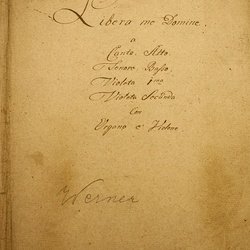 Libera me Domine.
a
Canto. Alto.
Tenore. Basso.
Violeta 1ma
Violeta Secunda
Con
Organo e Violone
Werner